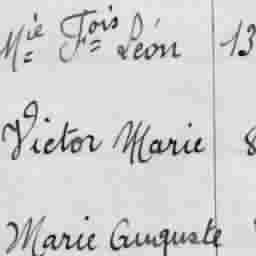 Mie Fois Léon 13
Victor Marie 8
Marie Auguste